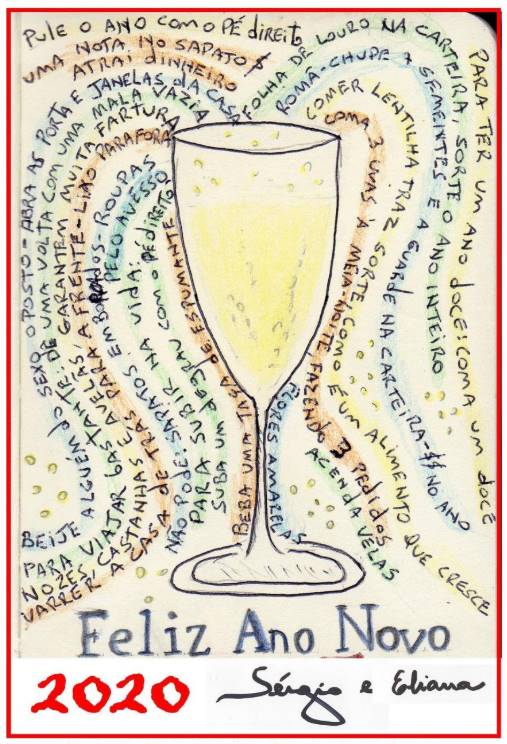 PULE O ANO COM O PÉ DIREITO
UMA NOTA NO SAPATO $
ATRAI DINHEIRO
FOLHA DE LOURO NA CARTEIRA, SORTE O ANO INTEIRO
ROMA-CHUPE A SEMEINTES E A GUARDE NA CARTEIRA-$$ NO ANO
PARA TER UM ANO DOCE: COMA UM DOCE
COMER LENTILHA TRAZ SORTE, COMO É UM ALIMENTO QUE CRESCE
COMA 3 UVAS À MEIA-NOITE FAZENDO 3 PEDIDOS
ACENDA VELAS
FLORES AMARELAS
BEIJE ALGUÉM DO SEXO OPOSTO-ABRA AS PORTA E JANELAS DA CASA
PARA VIAJAR BASTANTE: DE UMA VOLTA COM UMA MALA VAZIA
NOZES, CASTANHAS E AVELÃS, GARANTEM MUITA FARTURA
VARRER A CASA DE TRAS PARA A FRENTE-LIXO PARA FORA
NÃO PODE: SAPATOS EMBORCADOS-ROUPAS
PELO AVESSO
PARA SUBIR NA VIDA:
SUBA UM DEGRAU COM O PÉ DIREITO
BEBA UMA TAÇA DE ESPUMANTE
Feliz Ano Novo
2020 Sérgio e Eliana